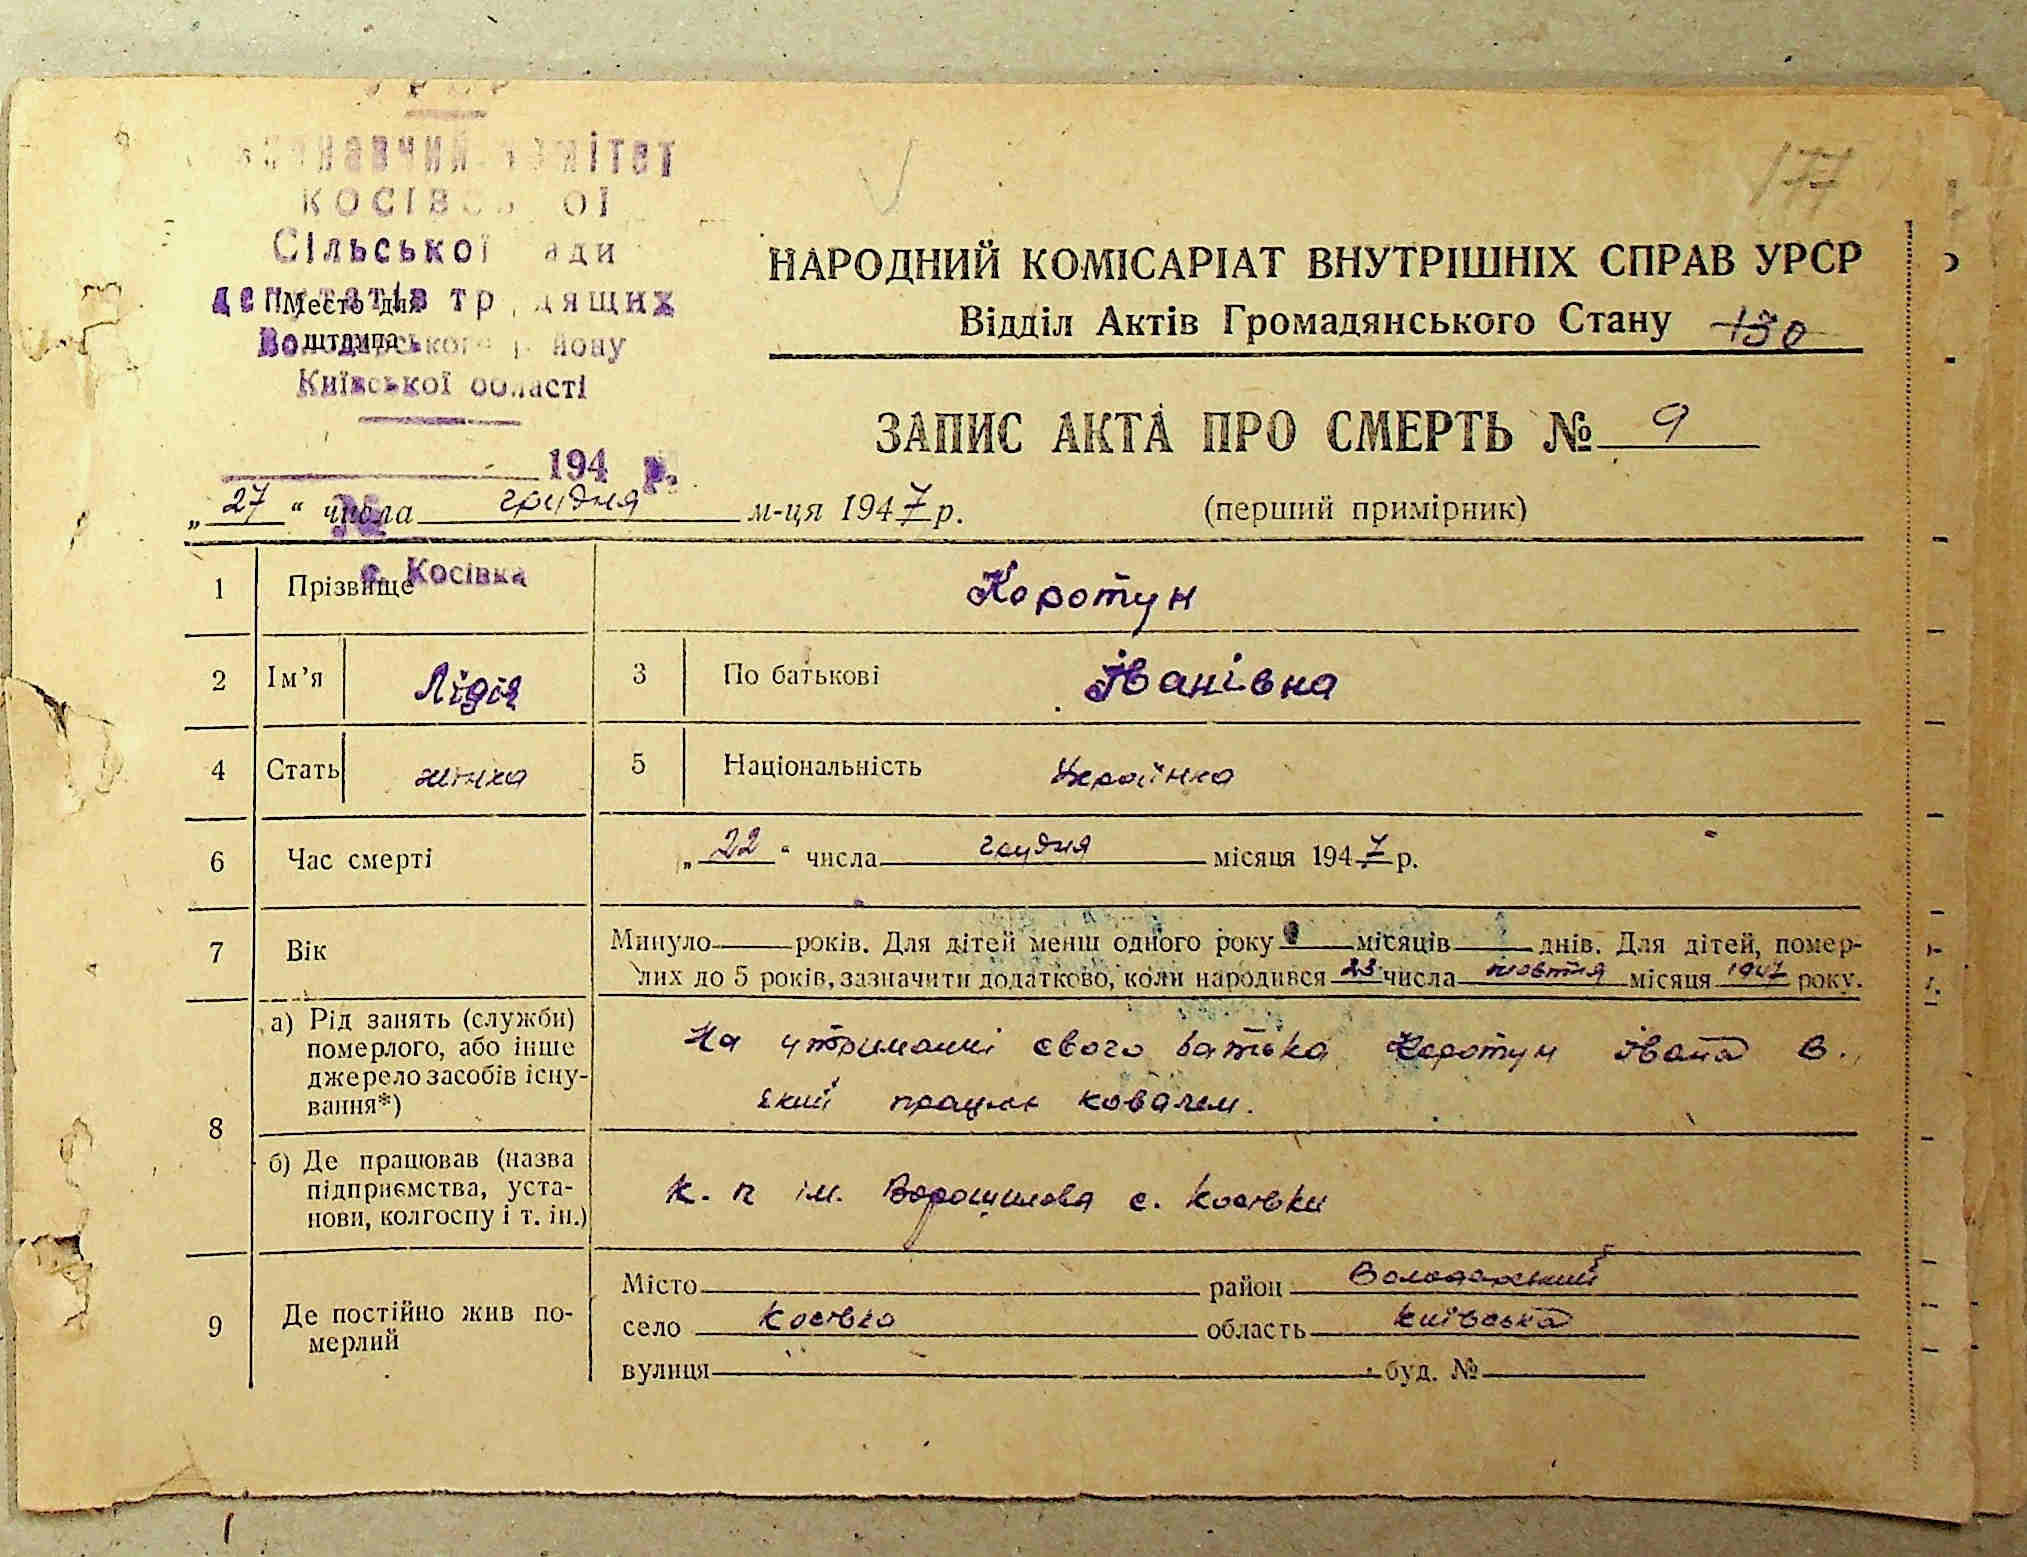 УРСР
Виконавчий комітет
КОСІВСЬКОЇ
Сільської Ради
депутатів трудящих
Володарського району
Київської області
Место для
штампа
194 р.
№
с. Косівка
177
НАРОДНИЙ КОМІСАРІАТ ВНУТРІШНІХ СПРАВ УРСР
Відділ Актів Громадянського Стану
ЗАПИС АКТА ПРО СМЕРТЬ № 9
„27“ числа грудня м-ця 1947 р. (перший примірник)
1 Прізвище Коротун
2 Ім’я Лідія 3 По батькові Іванівна
4 Стать жінка 5 Національність Українка
6 Час смерті „22“ числа грудня місяця 1947 р.
7 Вік Минуло років. Для дітей менш одного року місяців днів. Для дітей, помер-
лих до 5 років, зазначити додатково, коли народився 23 числа жовтня місяця 1947 року.
8 а) Рід занять (служби)
померлого, або інше
джерело засобів існу-
вання*)
На утриманні свого батька Коротун Івана В.
який працює ковалем.
б) Де працював (назва
підприємства, уста-
нови, колгоспу і т. ін.)
к. г. ім. Ворошилова с. Косівки
9 Де постійно жив по-
мерлий
Місто район Володарський
село Косівка область Київська
вулиця буд. №